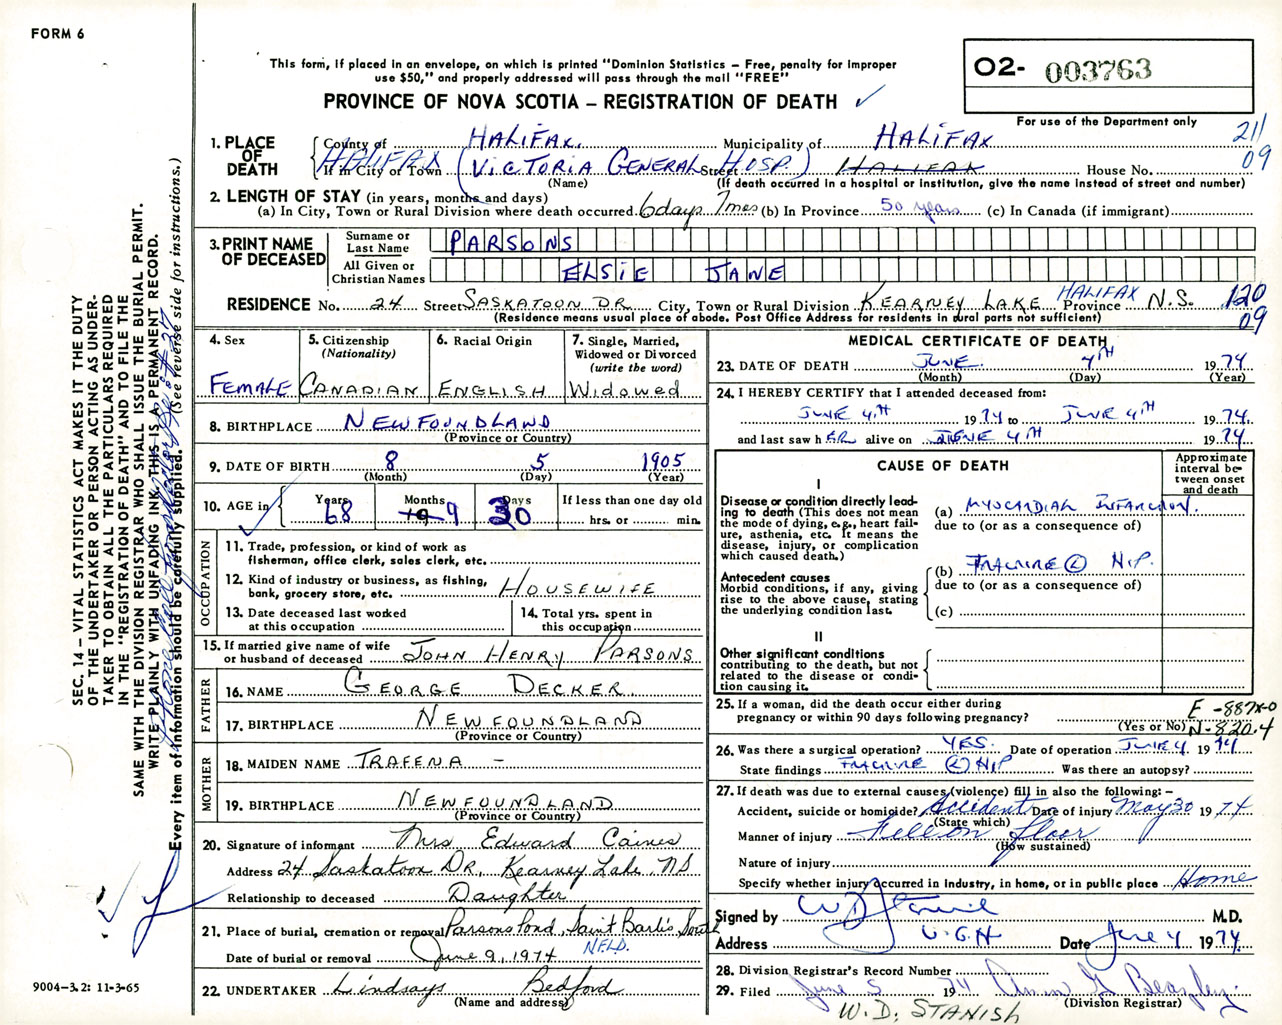 FORM 6
This form, if placed in an envelope, on which is printed "Dominion Statistics – Free, penalty for improper
use $50," and properly addressed will pass through the mail "FREE"
PROVINCE OF NOVA SCOTIA – REGISTRATION OF DEATH ✓
O2- 003763
For use of the Department only
211
09
1. PLACE OF DEATH
County of HALIFAX. Municipality of HALIFAX
HALIFAX If in City or Town (VICTORIA GENERAL Street HOSP.) HALIFAX House No.
(Name) (If death occurred in a hospital or institution, give the name instead of street and number)
2. LENGTH OF STAY (in years, months and days)
(a) In City, Town or Rural Division where death occurred. 6 days 7 mos (b) In Province 50 years (c) In Canada (if immigrant)
3. PRINT NAME OF DECEASED
Surname or Last Name PARSONS
All Given or Christian Names ELSIE JANE
RESIDENCE No. 24 Street SASKATOON DR. City, Town or Rural Division KEARNEY LAKE HALIFAX Province N.S. 120
09
(Residence means usual place of abode. Post Office Address for residents in rural parts not sufficient)
4. Sex FEMALE
5. Citizenship (Nationality) CANADIAN
6. Racial Origin ENGLISH
7. Single, Married, Widowed or Divorced (write the word) Widowed
8. BIRTHPLACE NEWFOUNDLAND
(Province or Country)
9. DATE OF BIRTH 8 5 1905
(Month) (Day) (Year)
10. AGE in Years 68 Months 9 Days 30 If less than one day old
hrs. or min.
OCCUPATION
11. Trade, profession, or kind of work as
fisherman, office clerk, sales clerk, etc.
12. Kind of industry or business, as fishing,
bank, grocery store, etc. HOUSEWIFE
13. Date deceased last worked
at this occupation
14. Total yrs. spent in
this occupation
15. If married give name of wife
or husband of deceased JOHN HENRY PARSONS
FATHER
16. NAME GEORGE DECKER
17. BIRTHPLACE NEWFOUNDLAND
(Province or Country)
MOTHER
18. MAIDEN NAME TRAFENA –
19. BIRTHPLACE NEWFOUNDLAND
(Province or Country)
20. Signature of informant Mrs Edward Caines
Address 24 Saskatoon DR, Kearney Lake, NS
Relationship to deceased Daughter
21. Place of burial, cremation or removal Parsons Pond, Saint Barbs South
NFLD.
Date of burial or removal June 9, 1974
22. UNDERTAKER Lindsays Bedford
(Name and address)
MEDICAL CERTIFICATE OF DEATH
23. DATE OF DEATH JUNE 4TH 1974
(Month) (Day) (Year)
24. I HEREBY CERTIFY that I attended deceased from:
JUNE 4TH 1974 to JUNE 4TH 1974
and last saw hER alive on JUNE 4TH 1974
CAUSE OF DEATH
Approximate interval between onset and death
I
Disease or condition directly leading to death (This does not mean the mode of dying, e.g., heart failure, asthenia, etc. It means the disease, injury, or complication which caused death.)
(a) MYOCARDIAL INFARCTION.
due to (or as a consequence of)
Antecedent causes
Morbid conditions, if any, giving rise to the above cause, stating the underlying condition last.
(b) FRACTURE Ⓛ HIP.
due to (or as a consequence of)
(c)
II
Other significant conditions
contributing to the death, but not related to the disease or condition causing it.
25. If a woman, did the death occur either during
pregnancy or within 90 days following pregnancy?
(Yes or No)
E -887X-0
N-820.4
26. Was there a surgical operation? YES. Date of operation JUNE 4 1974
State findings FRACTURE Ⓛ HIP Was there an autopsy?
27. If death was due to external causes (violence) fill in also the following: –
Accident, suicide or homicide? Accident Date of injury May 30 1974
(State which)
Manner of injury Fell on floor
(How sustained)
Nature of injury
Specify whether injury occurred in Industry, in home, or in public place Home
Signed by WD Stanish M.D.
Address V.G.H Date June 4 1974
28. Division Registrar's Record Number
29. Filed June 5 1974
(Division Registrar)
W.D. STANISH
SEC. 14 – VITAL STATISTICS ACT MAKES IT THE DUTY
OF THE UNDERTAKER OR PERSON ACTING AS UNDER-
TAKER TO OBTAIN ALL THE PARTICULARS REQUIRED
IN THE "REGISTRATION OF DEATH" AND TO FILE THE
SAME WITH THE DIVISION REGISTRAR WHO SHALL ISSUE THE BURIAL PERMIT.
WRITE PLAINLY WITH UNFADING INK. THIS IS A PERMANENT RECORD.
Every item of information should be carefully supplied. (See reverse side for instructions.)
9004-3.2: 11-3-65